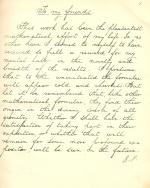 To my friends
This work has been the pleasantest
mathematical effort of my life. In no
other have I seemed to myself to have
received so full a reward for my
mental labor in the novelty and
breadth of the results. I
that to the uninitiated the formulas
will appear cold and cheerless. But
let it be remembered that, like other
mathematical formulas, they find their
origin in the divine source of all
geometry. Whether I shall have the
satisfaction of taking part in their
exposition, or whether that will
remain for some more profound
, will be seen in the future.
B.P.